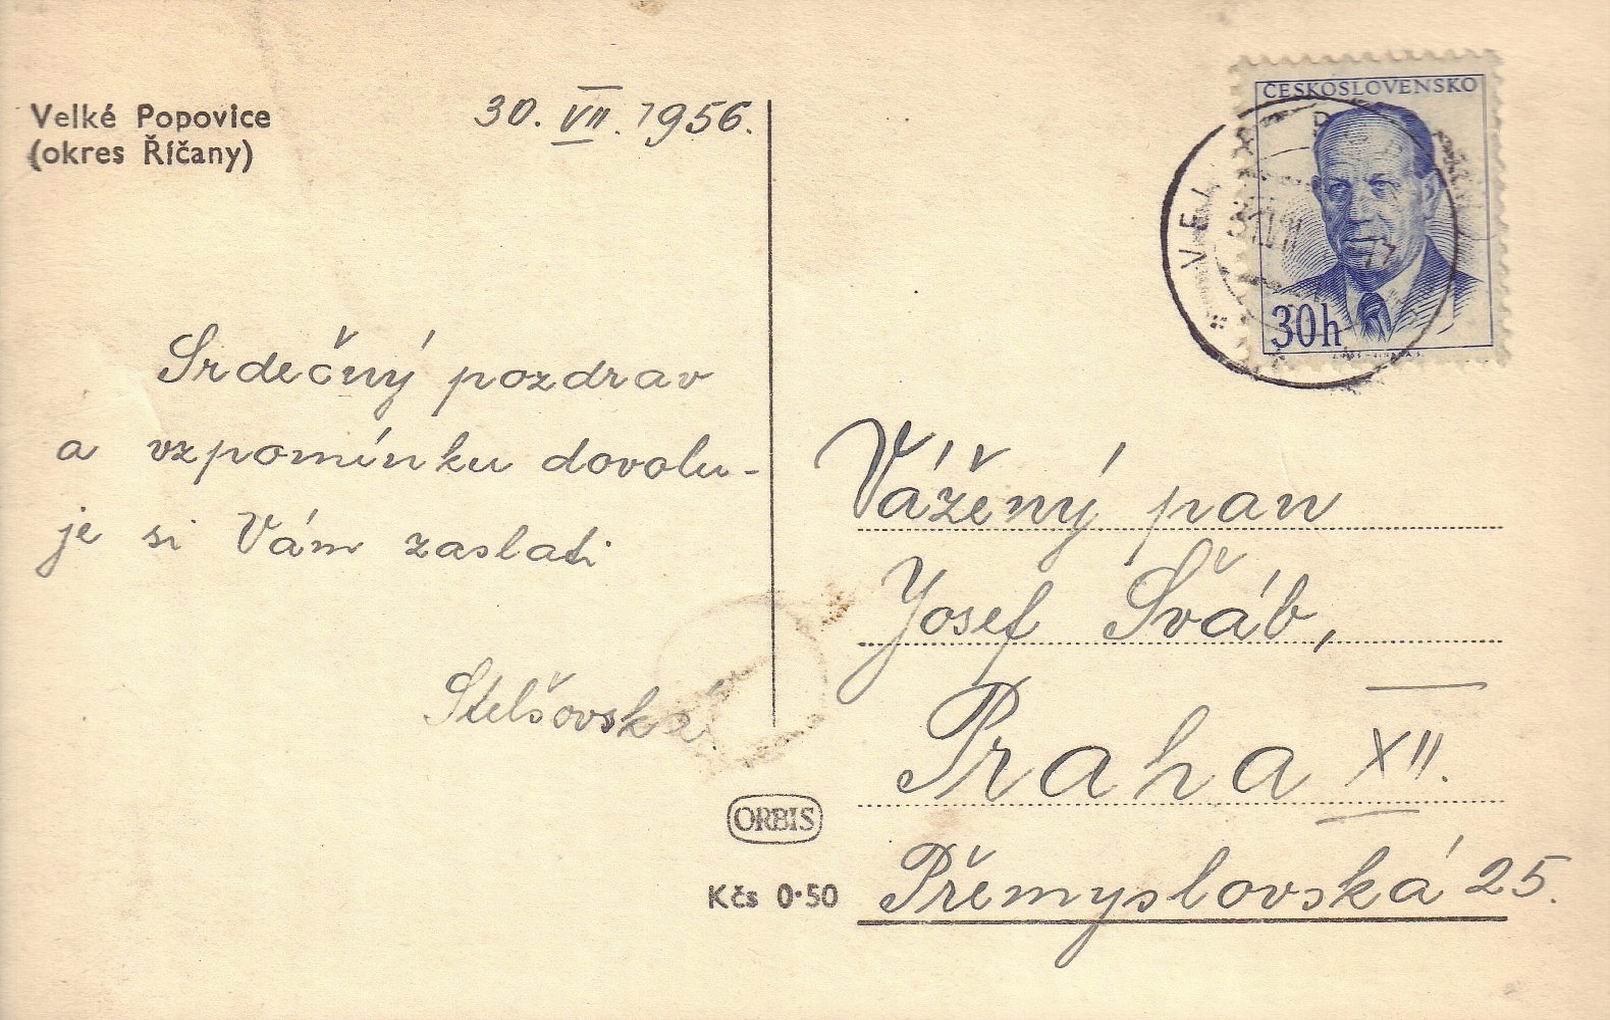 Velké Popovice
(okres Říčany)
30. VII. 1956.
Srdečný pozdrav
a vzpomínku dovolu-
je si Vám zaslati
Stelšovská
ORBIS
Kčs 0·50
ČESKOSLOVENSKO
30h
VEL
Vážený pan
Josef Šváb,
Praha XII.
Přemyslovská 25.